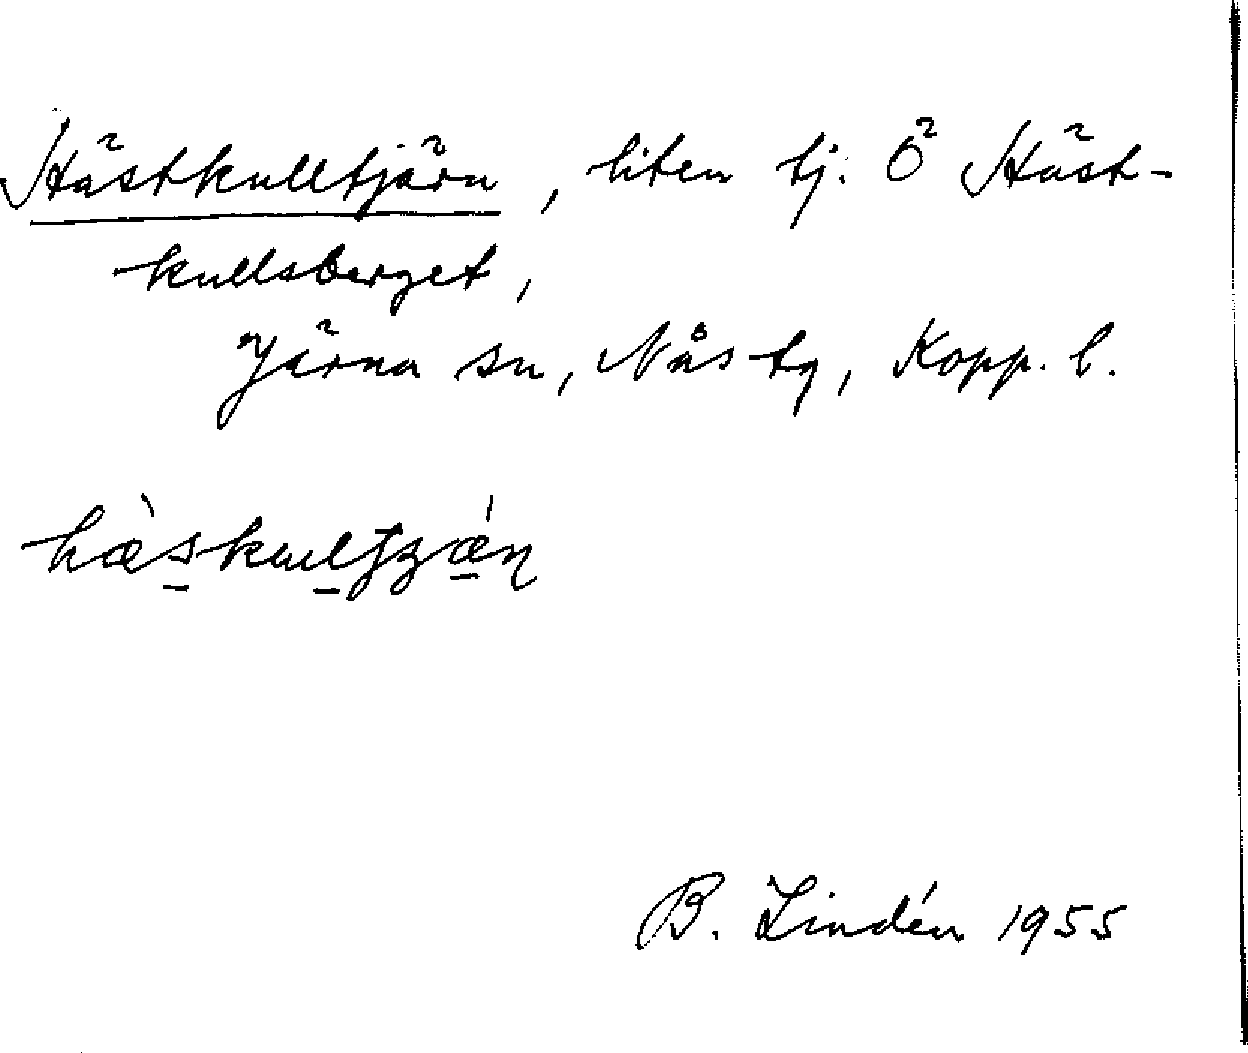 Hästkulltjärn, liten tj. Ö Häst-
kullsberget,
Järna sn, Nås tg, Kopp. l.
B. Lindén 1955